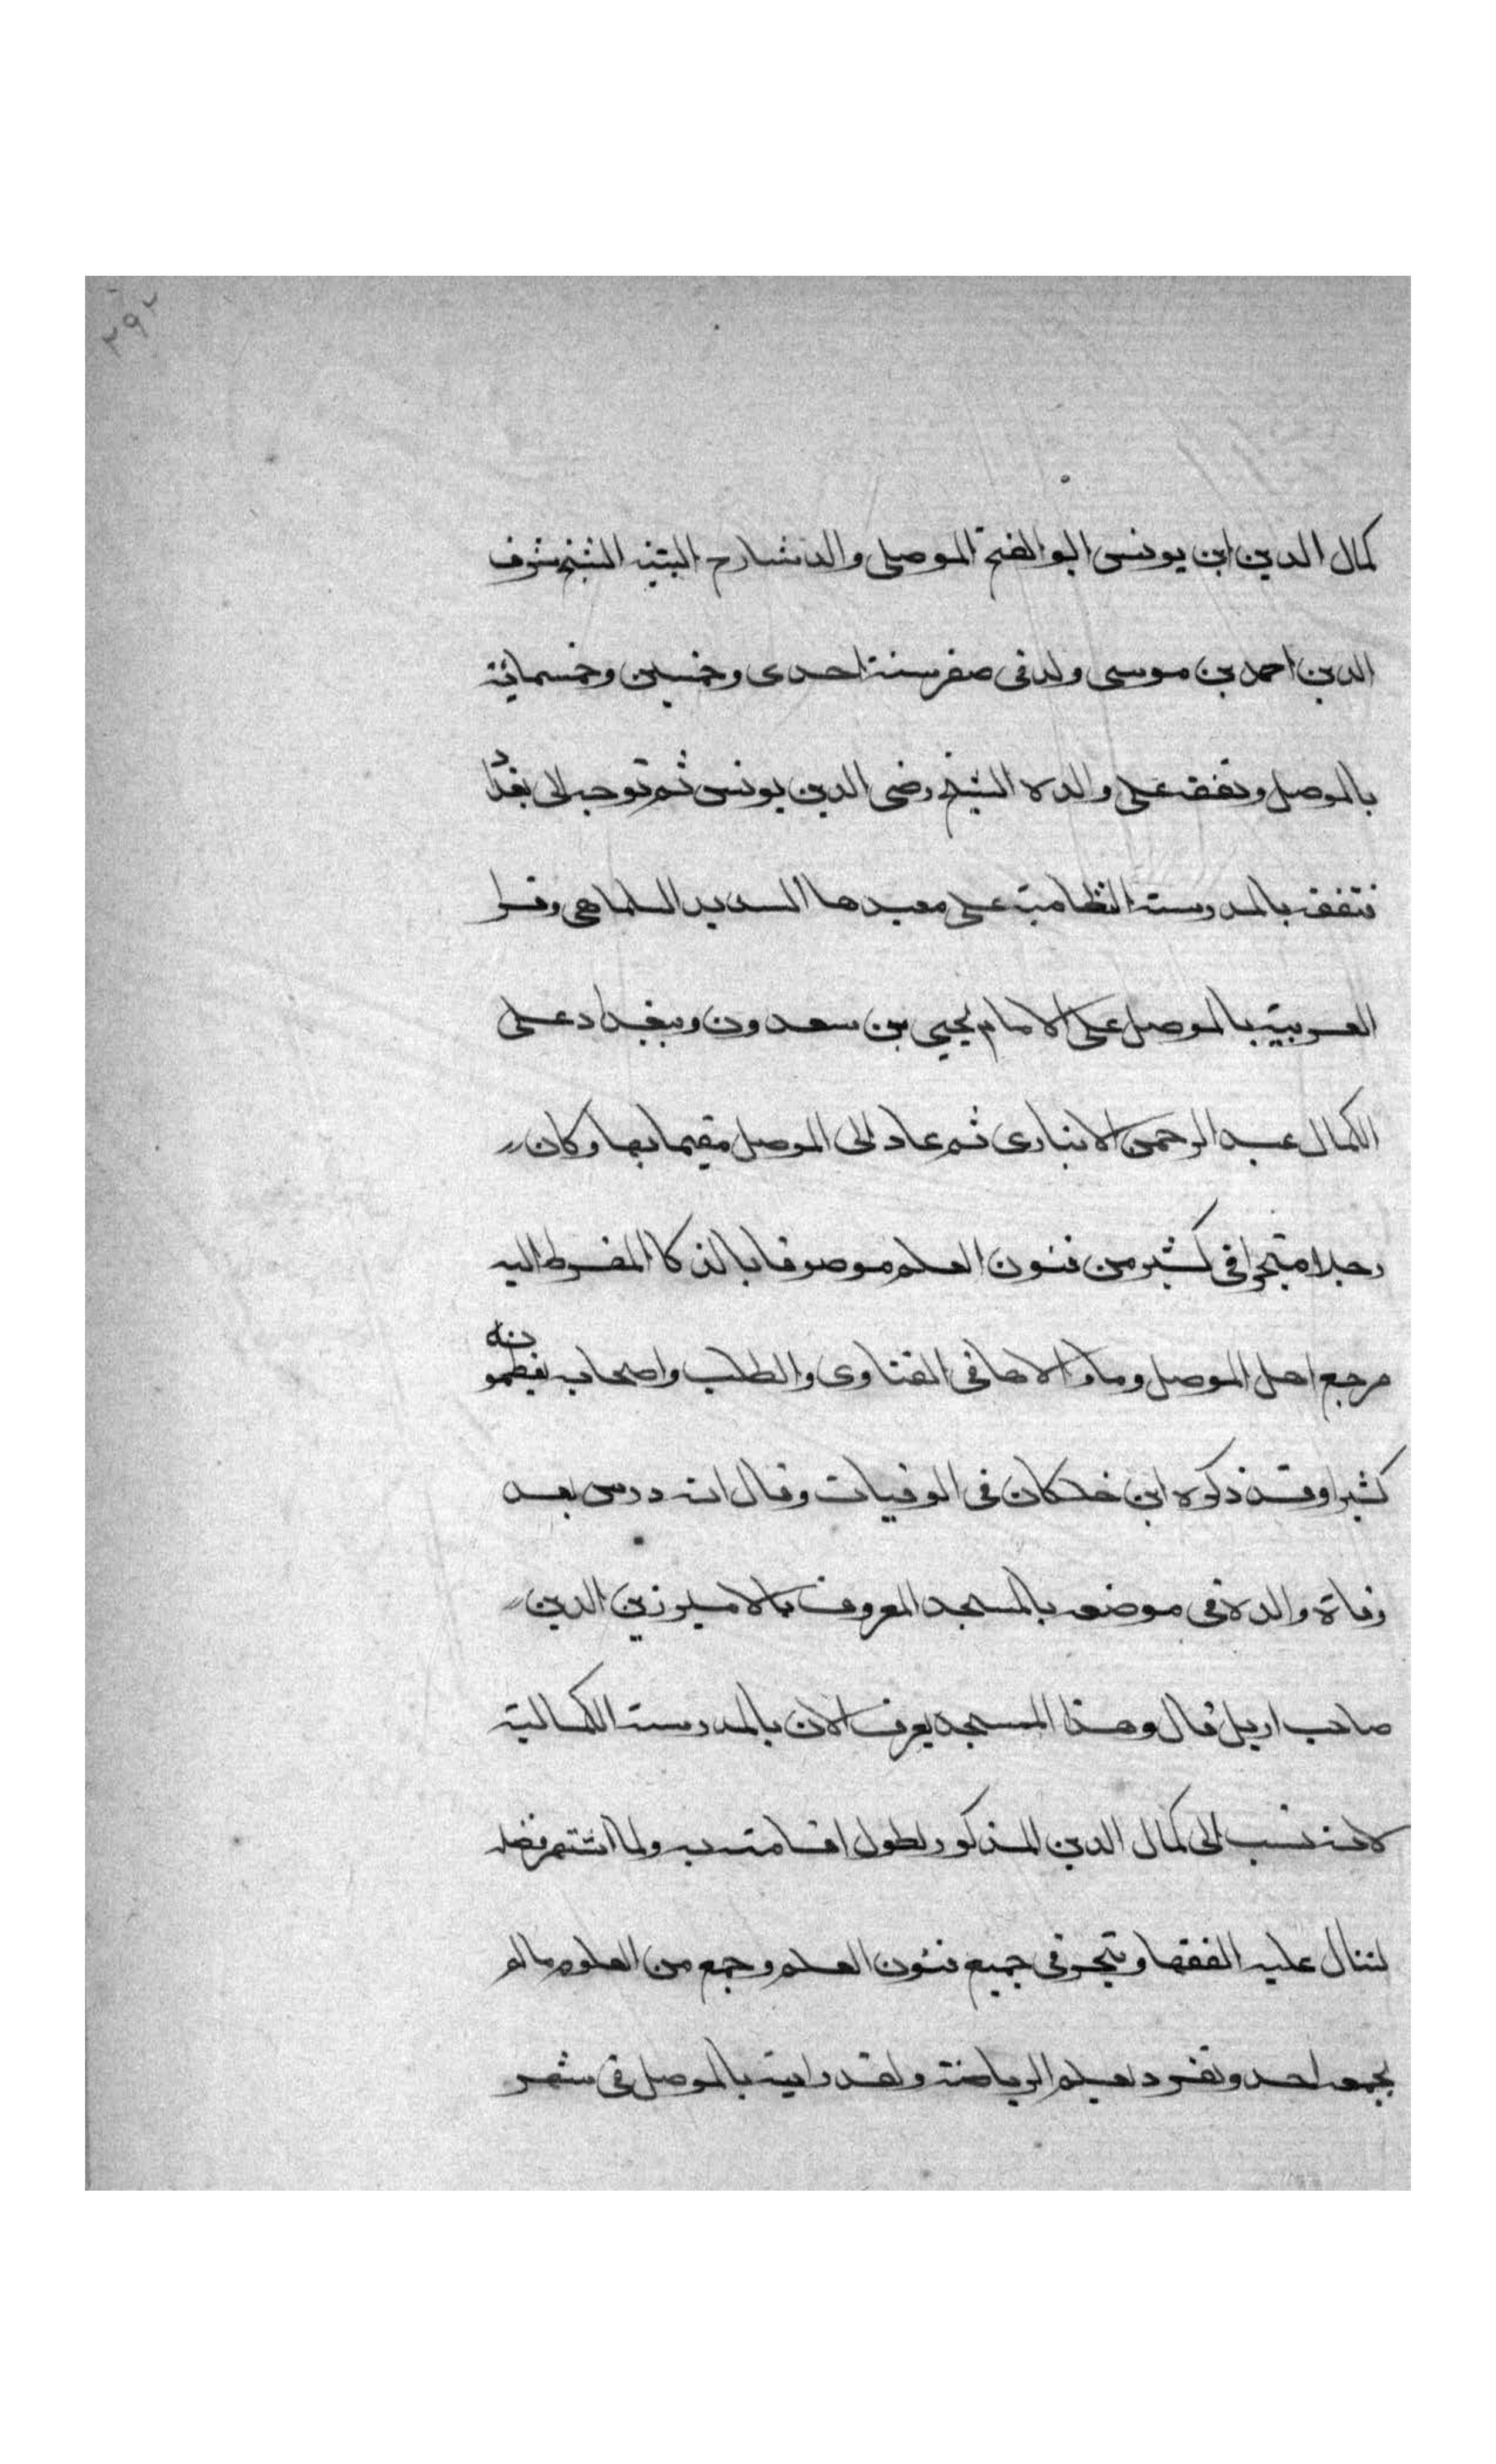 ٢٩٢
كمال الدين ابن يونس ابو الفتح الموصلى والد شارح التنبيه الشيخ شرف
الدين احمد بن موسى ولد فى صفر سنة احدى وخمسين وخمسمائة
بالموصل وتفقه على والده الشيخ رضى الدين يونس ثم توجه الى بغداد
فتفقه بالمدرسة النظامية على معيدها السديد السلماهى وقرا
العربية بالموصل على الامام يحيى بن سعدون وببغداد على
الكمال عبد الرحمن الانبارى ثم عاد الى الموصل مقيما بها وكان
رجلا متبحرا فى كثير من فنون العلم موصوفا بالذكا المفرط اليه
مرجع اهل الموصل وما والاها فى الفتاوى والطلب واصحابه يعظمونه
كثيرا وقد ذكره ابن خلكان فى الوفيات وقال انه درس بعد
وفاة والده فى موضعه بالمسجد المعروف بالامير زين الدين
صاحب اربل قال وهذا المسجد يعرف الان بالمدرسة الكمالية
لانه نسب الى كمال الدين المذكور لطول اقامته به ولما اشتهر فضله
انثال عليه الفقها وتبحر فى جميع فنون العلم وجمع من العلوم ما لم
يجمعه احد وتفرد بعلم الرياضة ولقد رايته بالموصل فى شهر